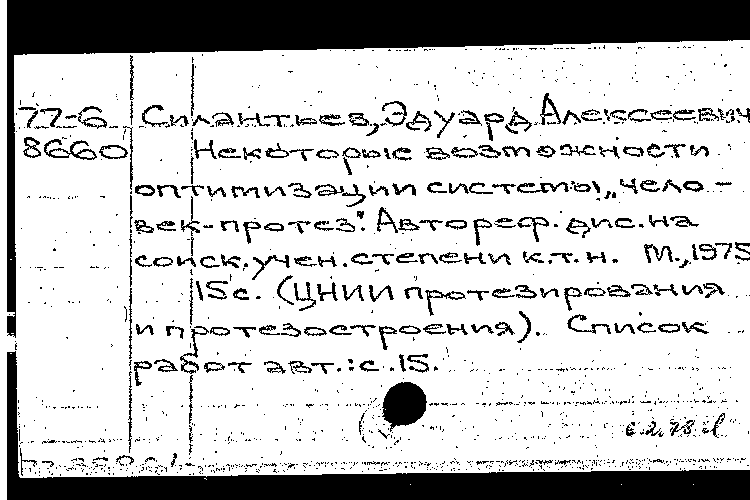 77-6 Силантьев, Эдуард Алексеевич
8660 Некоторые возможности
оптимизации системы „чело-
век-протез". Автореф. дис. на
соиск. учен. степени к.т.н. М., 1975
15 с. (ЦНИИ протезирования
и протезостроения). Список
работ авт.: с. 15.